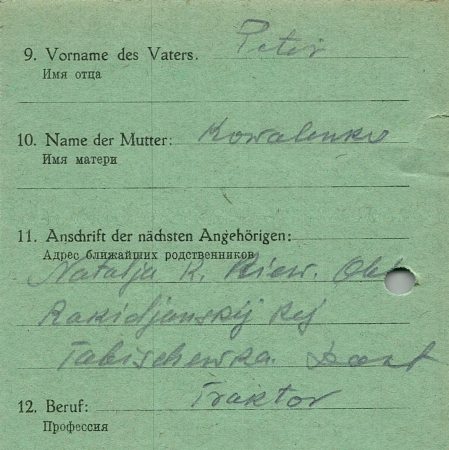 9. Vorname des Vaters. Peter
Имя отца
10. Name der Mutter: Kowalenko
Имя матери
11. Anschrift der nächsten Angehörigen:
Адрес ближайших родственников
Natalja K. Kiew. Obl
Rakidjanskij Rej
Tabischewka.
12. Beruf: Traktor
Профессия